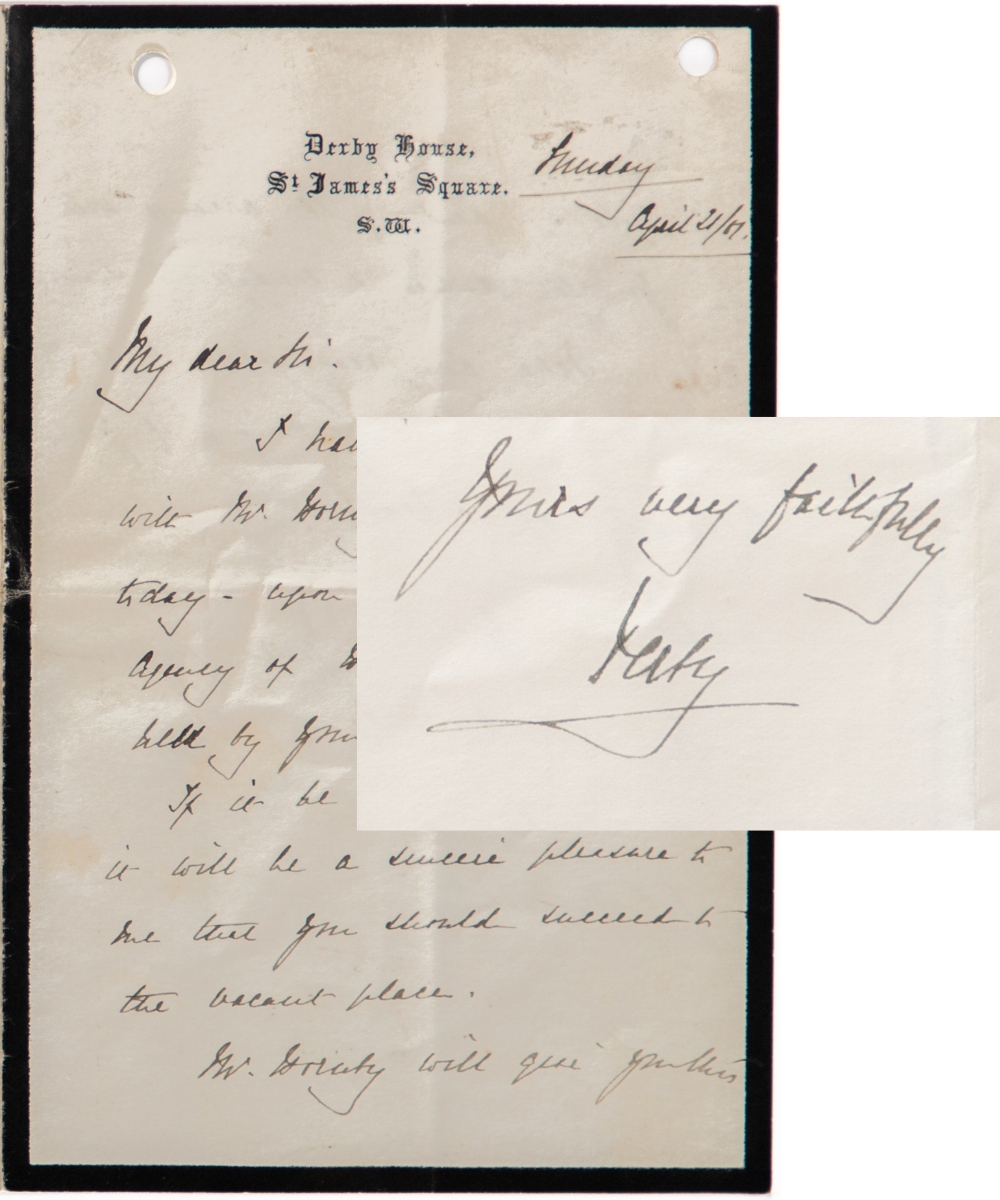 Derby House,
St James's Square.
S.W.
Sunday
April 21/01.
My dear Sir.
I
with Mr.
today - upon
Agency of
held by
If it be
it will be a sincere pleasure to
me that you should succeed to
the vacant place.
Mr. Hornby will give you this
Yours very faithfully
Derby